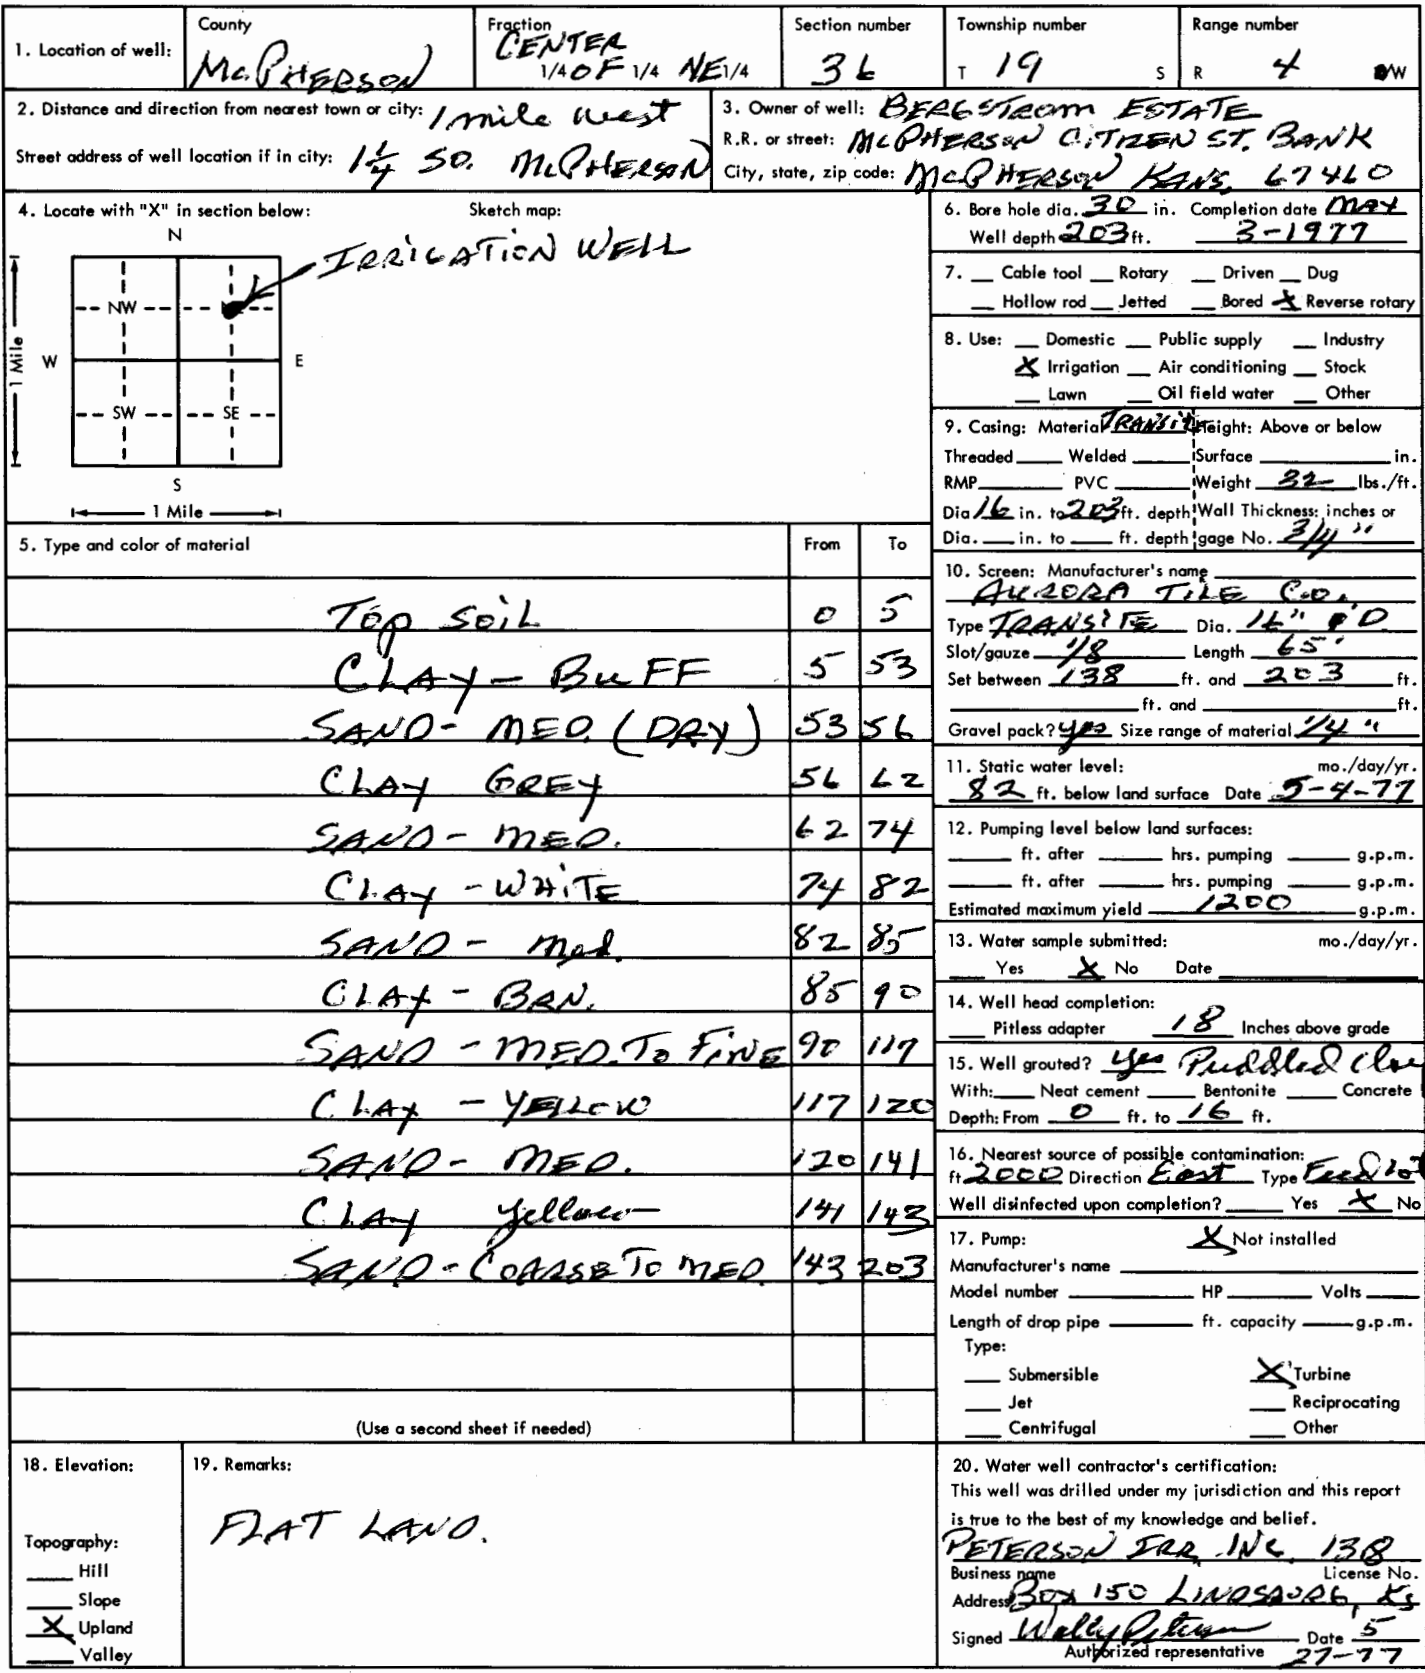 1. Location of well: County McPHERSON Fraction CENTER 1/4 OF 1/4 NE 1/4 Section number 36 Township number T 19 S Range number R 4 E/W
2. Distance and direction from nearest town or city: 1 mile west
Street address of well location if in city: 1 1/4 SO. McPHERSON
3. Owner of well: BERGSTROM ESTATE
R.R. or street: McPHERSON CITIZEN ST. BANK
City, state, zip code: McPHERSON KANS. 67460
4. Locate with "X" in section below: Sketch map:
N
IRRIGATION WELL
NW
W E
1 Mile
SW SE
S
1 Mile
6. Bore hole dia. 30 in. Completion date MAY
Well depth 203 ft. 3-1977
7. Cable tool Rotary Driven Dug
Hollow rod Jetted Bored X Reverse rotary
8. Use: Domestic Public supply Industry
X Irrigation Air conditioning Stock
Lawn Oil field water Other
9. Casing: Material TRANSITE Height: Above or below
Threaded Welded Surface in.
RMP PVC Weight 32 lbs./ft.
Dia 16 in. to 203 ft. depth Wall Thickness: inches or
Dia. in. to ft. depth gage No. 3/4"
10. Screen: Manufacturer's name
AURORA TILE Co.
Type TRANSITE Dia. 16" D
Slot/gauze 1/8 Length 65'
Set between 138 ft. and 203 ft.
ft. and ft.
Gravel pack? yes Size range of material 1/4"
11. Static water level: mo./day/yr.
82 ft. below land surface Date 5-4-77
12. Pumping level below land surfaces:
ft. after hrs. pumping g.p.m.
ft. after hrs. pumping g.p.m.
Estimated maximum yield 1200 g.p.m.
13. Water sample submitted: mo./day/yr.
Yes X No Date
14. Well head completion:
Pitless adapter 18 Inches above grade
15. Well grouted? yes Puddled Clay
With: Neat cement Bentonite Concrete
Depth: From 0 ft. to 16 ft.
16. Nearest source of possible contamination:
ft 2000 Direction East Type Feed lot
Well disinfected upon completion? Yes X No
17. Pump: X Not installed
Manufacturer's name
Model number HP Volts
Length of drop pipe ft. capacity g.p.m.
Type:
Submersible X Turbine
Jet Reciprocating
Centrifugal Other
5. Type and color of material From To
TOP SOIL 0 5
CLAY - BUFF 5 53
SAND - MED. (DRY) 53 56
CLAY GREY 56 62
SAND - MED. 62 74
CLAY - WHITE 74 82
SAND - Med. 82 85
CLAY - BRN. 85 90
SAND - MED. TO FINE 90 117
CLAY - YELLOW 117 120
SAND - MED. 120 141
CLAY yellow 141 143
SAND - COARSE TO MED 143 203
(Use a second sheet if needed)
18. Elevation:
Topography:
Hill
Slope
X Upland
Valley
19. Remarks:
FLAT LAND.
20. Water well contractor's certification:
This well was drilled under my jurisdiction and this report
is true to the best of my knowledge and belief.
PETERSON IRR. INC. 138
Business name License No.
Address Box 150 LINDSBORG, Ks
Signed Wally Peterson Date 5
Authorized representative 27-77